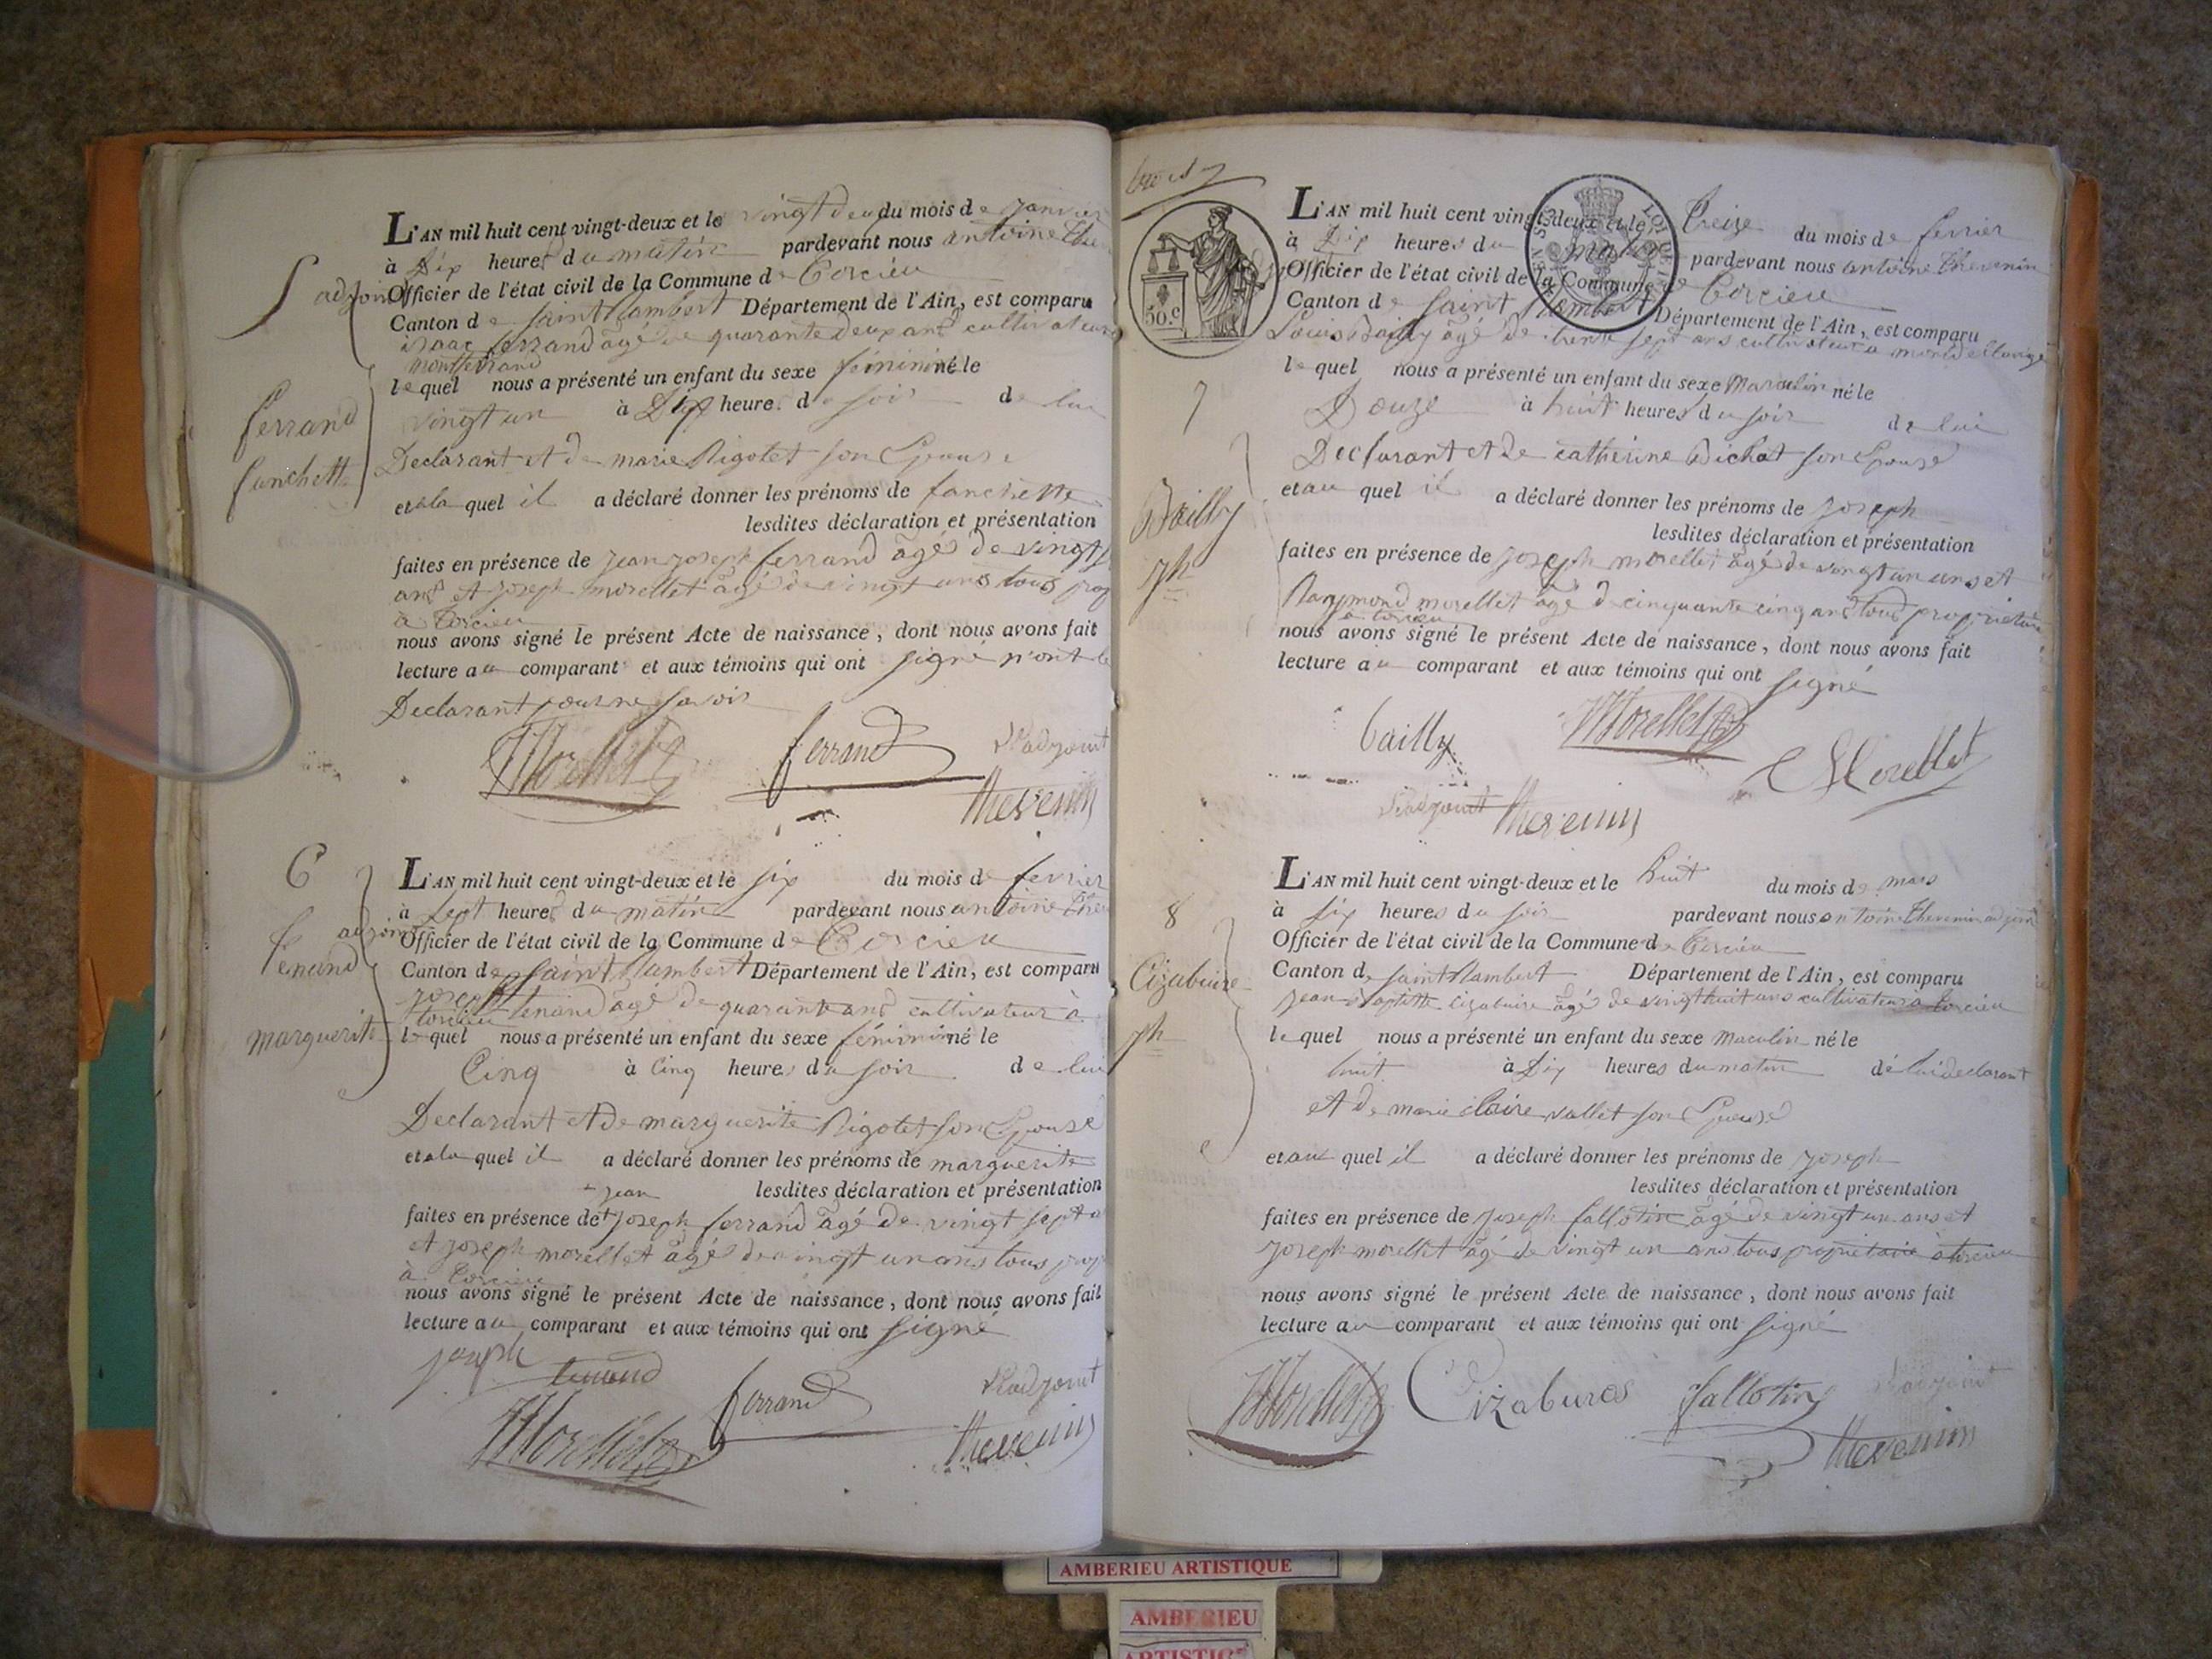 5
L'AN mil huit cent vingt-deux et le vingt deux du mois de janvier
à Dix heures du matin pardevant nous antoine
adjoint Officier de l'état civil de la Commune de Torcieu
Canton de Saint Rambert Département de l'Ain, est comparu
isaac ferrand âgé de quarante deux ans cultivateur
montferrand
le quel nous a présenté un enfant du sexe féminin né le
vingt un à Dix heures du soir de lui
ferrand
fanchette
Declarant et de marie Rigotet son Epouse
et a la quel il a déclaré donner les prénoms de fanchette
lesdites déclaration et présentation
faites en présence de jean joseph ferrand âgés de vingt
ans et joseph morellet âgé de vingt ans tous
à Torcieu
nous avons signé le présent Acte de naissance, dont nous avons fait
lecture au comparant et aux témoins qui ont signé n'ont le
Declarant pour ne savoir
JMorellet ferrand adjoint
thevenin
6
L'AN mil huit cent vingt-deux et le six du mois de fevrier
à sept heures du matin pardevant nous antoine
adjoint Officier de l'état civil de la Commune de Torcieu
Canton de Saint Rambert Département de l'Ain, est comparu
joseph tenand âgé de quarante ans cultivateur à
torcieu
le quel nous a présenté un enfant du sexe féminin né le
Cinq à Cinq heures du soir de lui
tenand
marguerite
Declarant et de marguerite Rigotet son Epouse
et a la quel il a déclaré donner les prénoms de marguerite
+ jean lesdites déclaration et présentation
faites en présence de + joseph ferrand âgé de vingt sept
et joseph morellet âgé de vingt un ans tous
à Torcieu
nous avons signé le présent Acte de naissance, dont nous avons fait
lecture au comparant et aux témoins qui ont signé
joseph tenand
JMorellet ferrand adjoint
thevenin
50.c
7
L'AN mil huit cent vingt-deux et le Treize du mois de fevrier
à Dix heures du matin pardevant nous antoine thevenin
Officier de l'état civil de la Commune de Torcieu
Canton de Saint Rambert Département de l'Ain, est comparu
Louis Bailly âgé de trente sept ans cultivateur a
le quel nous a présenté un enfant du sexe Masculin né le
Douze à huit heures du soir de lui
Bailly
jph
Declarant et de catherine Bichat son Epouse
et au quel il a déclaré donner les prénoms de joseph
lesdites déclaration et présentation
faites en présence de joseph morellet âgé de vingt un ans et
Raymond morellet âgé de cinquante cinq ans tous proprietaire
a torcieu
nous avons signé le présent Acte de naissance, dont nous avons fait
lecture au comparant et aux témoins qui ont signé
bailly JMorellet
Morellet
adjoint thevenin
8
L'AN mil huit cent vingt-deux et le huit du mois de mars
à six heures du soir pardevant nous antoine thevenin adjoint
Officier de l'état civil de la Commune de Torcieu
Canton de saint Rambert Département de l'Ain, est comparu
jean Baptiste cizabuire âgé de vingt huit ans cultivateur a torcieu
le quel nous a présenté un enfant du sexe maculin né le
huit à Dix heures du matin de lui declarant
Cizabuire
jph
et de marie claire vallet son Epouse
et au quel il a déclaré donner les prénoms de joseph
lesdites déclaration et présentation
faites en présence de joseph fallotin âgé de vingt un ans et
joseph morellet âgé de vingt un ans tous proprietaire a torcieu
nous avons signé le présent Acte de naissance, dont nous avons fait
lecture au comparant et aux témoins qui ont signé
JMorellet Cizabures fallotin
thevenin
AMBERIEU ARTISTIQUE
AMBERIEU